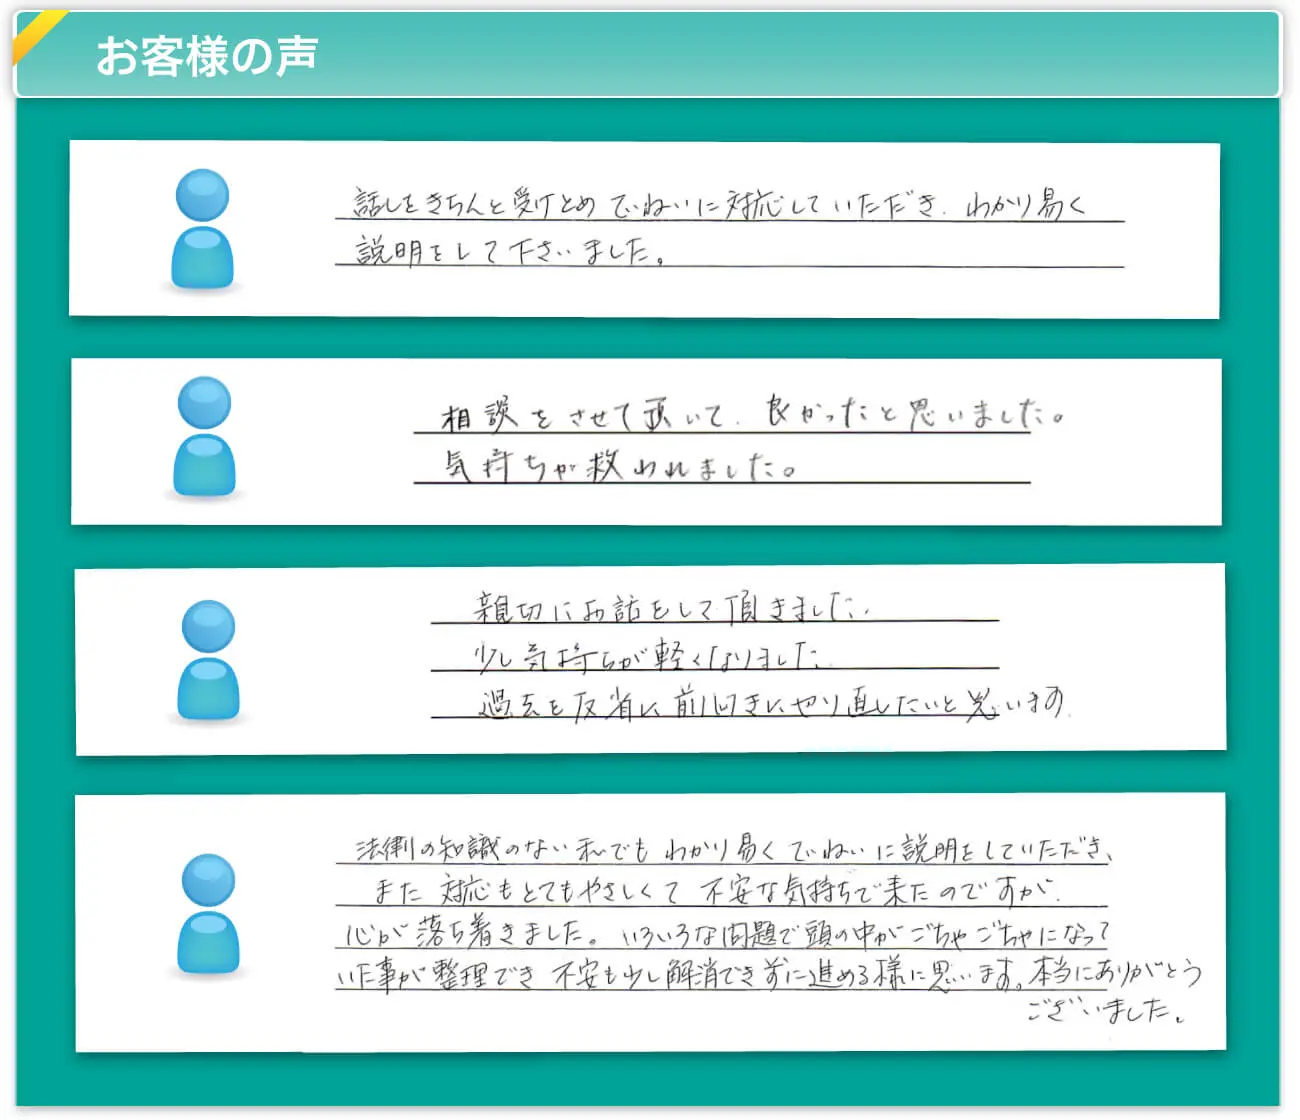 お客様の声
話しをきちんと受けとめ ていねいに対応していただき、わかり易く
説明をして下さいました。
相談をさせて頂いて、良かったと思いました。
気持ちが救われました。
親切にお話をして頂きました。
少し気持ちが軽くなりました
過去を反省し前向きにやり直したいと思います
法律の知識のない私でも わかり易く ていねいに説明をしていただき、
また 対応もとてもやさしくて 不安な気持ちで来たのですが、
心が落ち着きました。いろいろな問題で頭の中がごちゃごちゃになって
いた事が整理でき 不安も少し解消でき 前に進める様に思います。本当にありがとう
ございました。